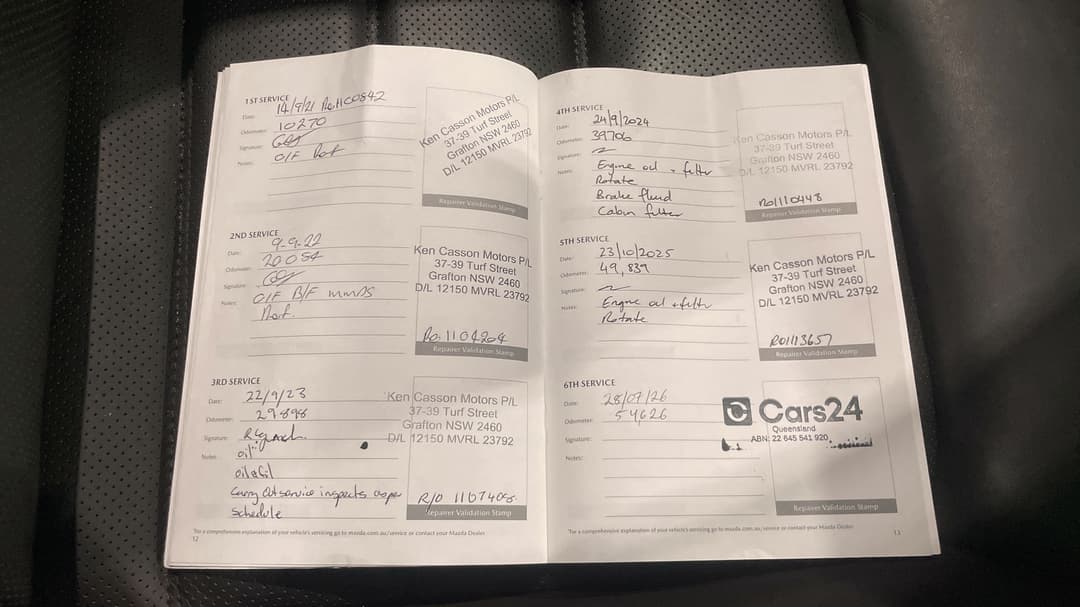 1ST SERVICE
Date: 14/9/21 Ro.11C0842
Odometer: 10270
Signature:
Notes: O/F Rot
Ken Casson Motors P/L
37-39 Turf Street
Grafton NSW 2460
D/L 12150 MVRL 23792
Repairer Validation Stamp
2ND SERVICE
Date: 9-9-22
Odometer: 20054
Signature:
Notes: O/F B/F
Rot.
Ken Casson Motors P/L
37-39 Turf Street
Grafton NSW 2460
D/L 12150 MVRL 23792
Ro. 1104204
Repairer Validation Stamp
3RD SERVICE
Date: 22/9/23
Odometer: 29898
Signature:
Notes: oil
oil & fil
Carry out service inspects as per
schedule
Ken Casson Motors P/L
37-39 Turf Street
Grafton NSW 2460
D/L 12150 MVRL 23792
R/O 1107408
Repairer Validation Stamp
*For a comprehensive explanation of your vehicle's servicing go to mazda.com.au/service or contact your Mazda Dealer
12
4TH SERVICE
Date: 24/9/2024
Odometer: 39706
Signature:
Notes: Engine oil + filter
Rotate
Brake fluid
Cabin filter
Ken Casson Motors P/L
37-39 Turf Street
Grafton NSW 2460
D/L 12150 MVRL 23792
RO1110448
Repairer Validation Stamp
5TH SERVICE
Date: 23/10/2025
Odometer: 49,839
Signature:
Notes: Engine oil + filter
Rotate
Ken Casson Motors P/L
37-39 Turf Street
Grafton NSW 2460
D/L 12150 MVRL 23792
RO1113657
Repairer Validation Stamp
6TH SERVICE
Date: 28/07/26
Odometer: 54,626
Signature:
Notes:
Cars24
Queensland
ABN: 22 645 541 920
Repairer Validation Stamp
*For a comprehensive explanation of your vehicle's servicing go to mazda.com.au/service or contact your Mazda Dealer
13